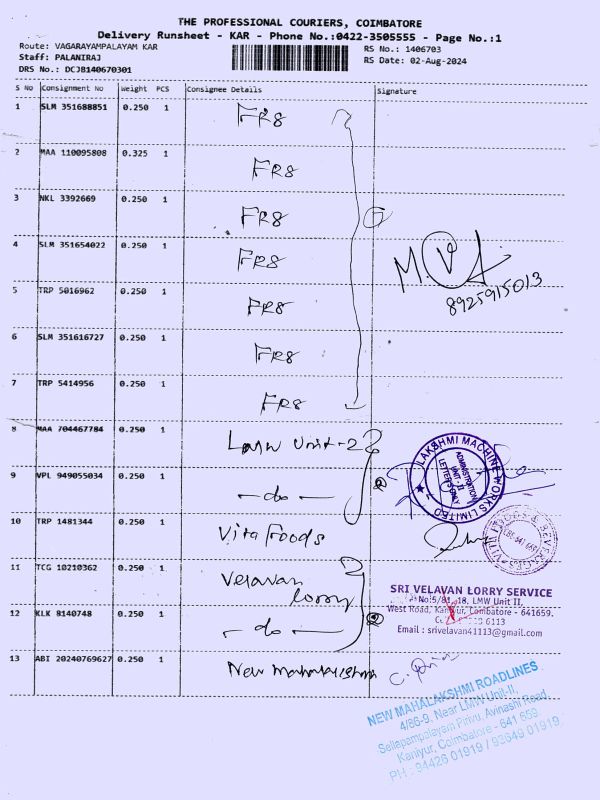 THE PROFESSIONAL COURIERS, COIMBATORE
Delivery Runsheet - KAR - Phone No.:0422-3505555 - Page No.:1
Route: VAGARAYAMPALAYAM KAR
RS No.: 1406703
Staff: PALANIRAJ
RS Date: 02-Aug-2024
DRS No.: DCJ8140670301
S No Consignment No Weight PCS Consignee Details Signature
1 SLM 351688851 0.250 1 FR8
2 MAA 110095808 0.325 1 FR8
3 NKL 3392669 0.250 1 FR8
7
4 SLM 351654022 0.250 1 FR8
M.V
8925915013
5 TRP 5016962 0.250 1 FR8
6 SLM 351616727 0.250 1 FR8
7 TRP 5414956 0.250 1 FR8
8 MAA 704467784 0.250 1 LMW Unit-2
LAKSHMI MACHINE WORKS LIMITED
ADMINISTRATION
UNIT-II
LETTERS ONLY
9 VPL 949055034 0.250 1 -do-
10 TRP 1481344 0.250 1 Vita Foods
11 TCG 10210362 0.250 1 Velavan
lorry
SRI VELAVAN LORRY SERVICE
No:5/81, 18, LMW Unit II,
West Road, Kaniyur, Coimbatore - 641659.
6113
Email : srivelavan41113@gmail.com
12 KLK 8140748 0.250 1 -do-
13 ABI 20240769627 0.250 1 New Mahalakshmi
NEW MAHALAKSHMI ROADLINES
4/86-9, Near LMW Unit-II,
Sellapampalayam Pirivu, Avinashi Road,
Kaniyur, Coimbatore - 641 659
PH : 94426 01919 / 93649 01919